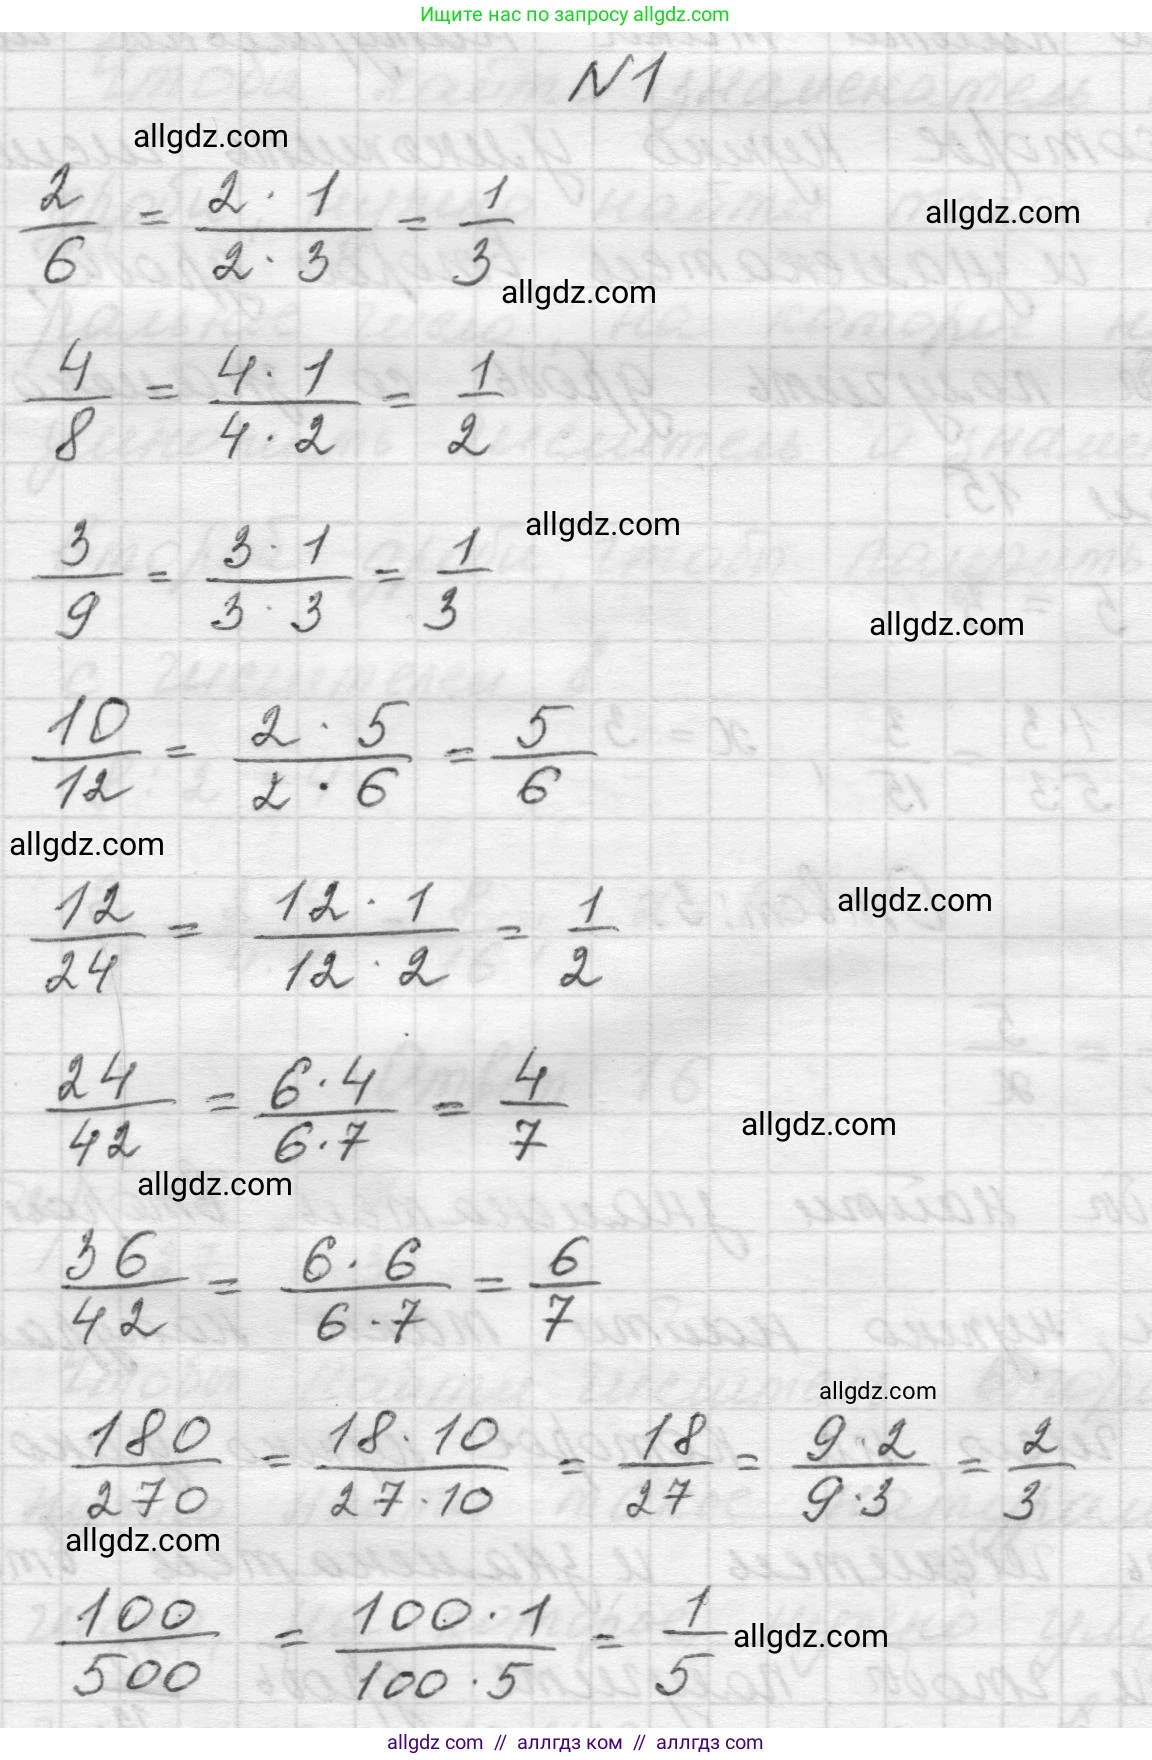 Ищите нас по запросу allgdz.com
N1
allgdz.com
2/6 = 2 · 1 / 2 · 3 = 1/3
allgdz.com
allgdz.com
4/8 = 4 · 1 / 4 · 2 = 1/2
3/9 = 3 · 1 / 3 · 3 = 1/3
allgdz.com
allgdz.com
10/12 = 2 · 5 / 2 · 6 = 5/6
allgdz.com
12/24 = 12 · 1 / 12 · 2 = 1/2
allgdz.com
24/42 = 6 · 4 / 6 · 7 = 4/7
allgdz.com
allgdz.com
36/42 = 6 · 6 / 6 · 7 = 6/7
allgdz.com
180/270 = 18 · 10 / 27 · 10 = 18/27 = 9 · 2 / 9 · 3 = 2/3
allgdz.com
100/500 = 100 · 1 / 100 · 5 = 1/5
allgdz.com
allgdz com // аллгдз ком // аллгдз com